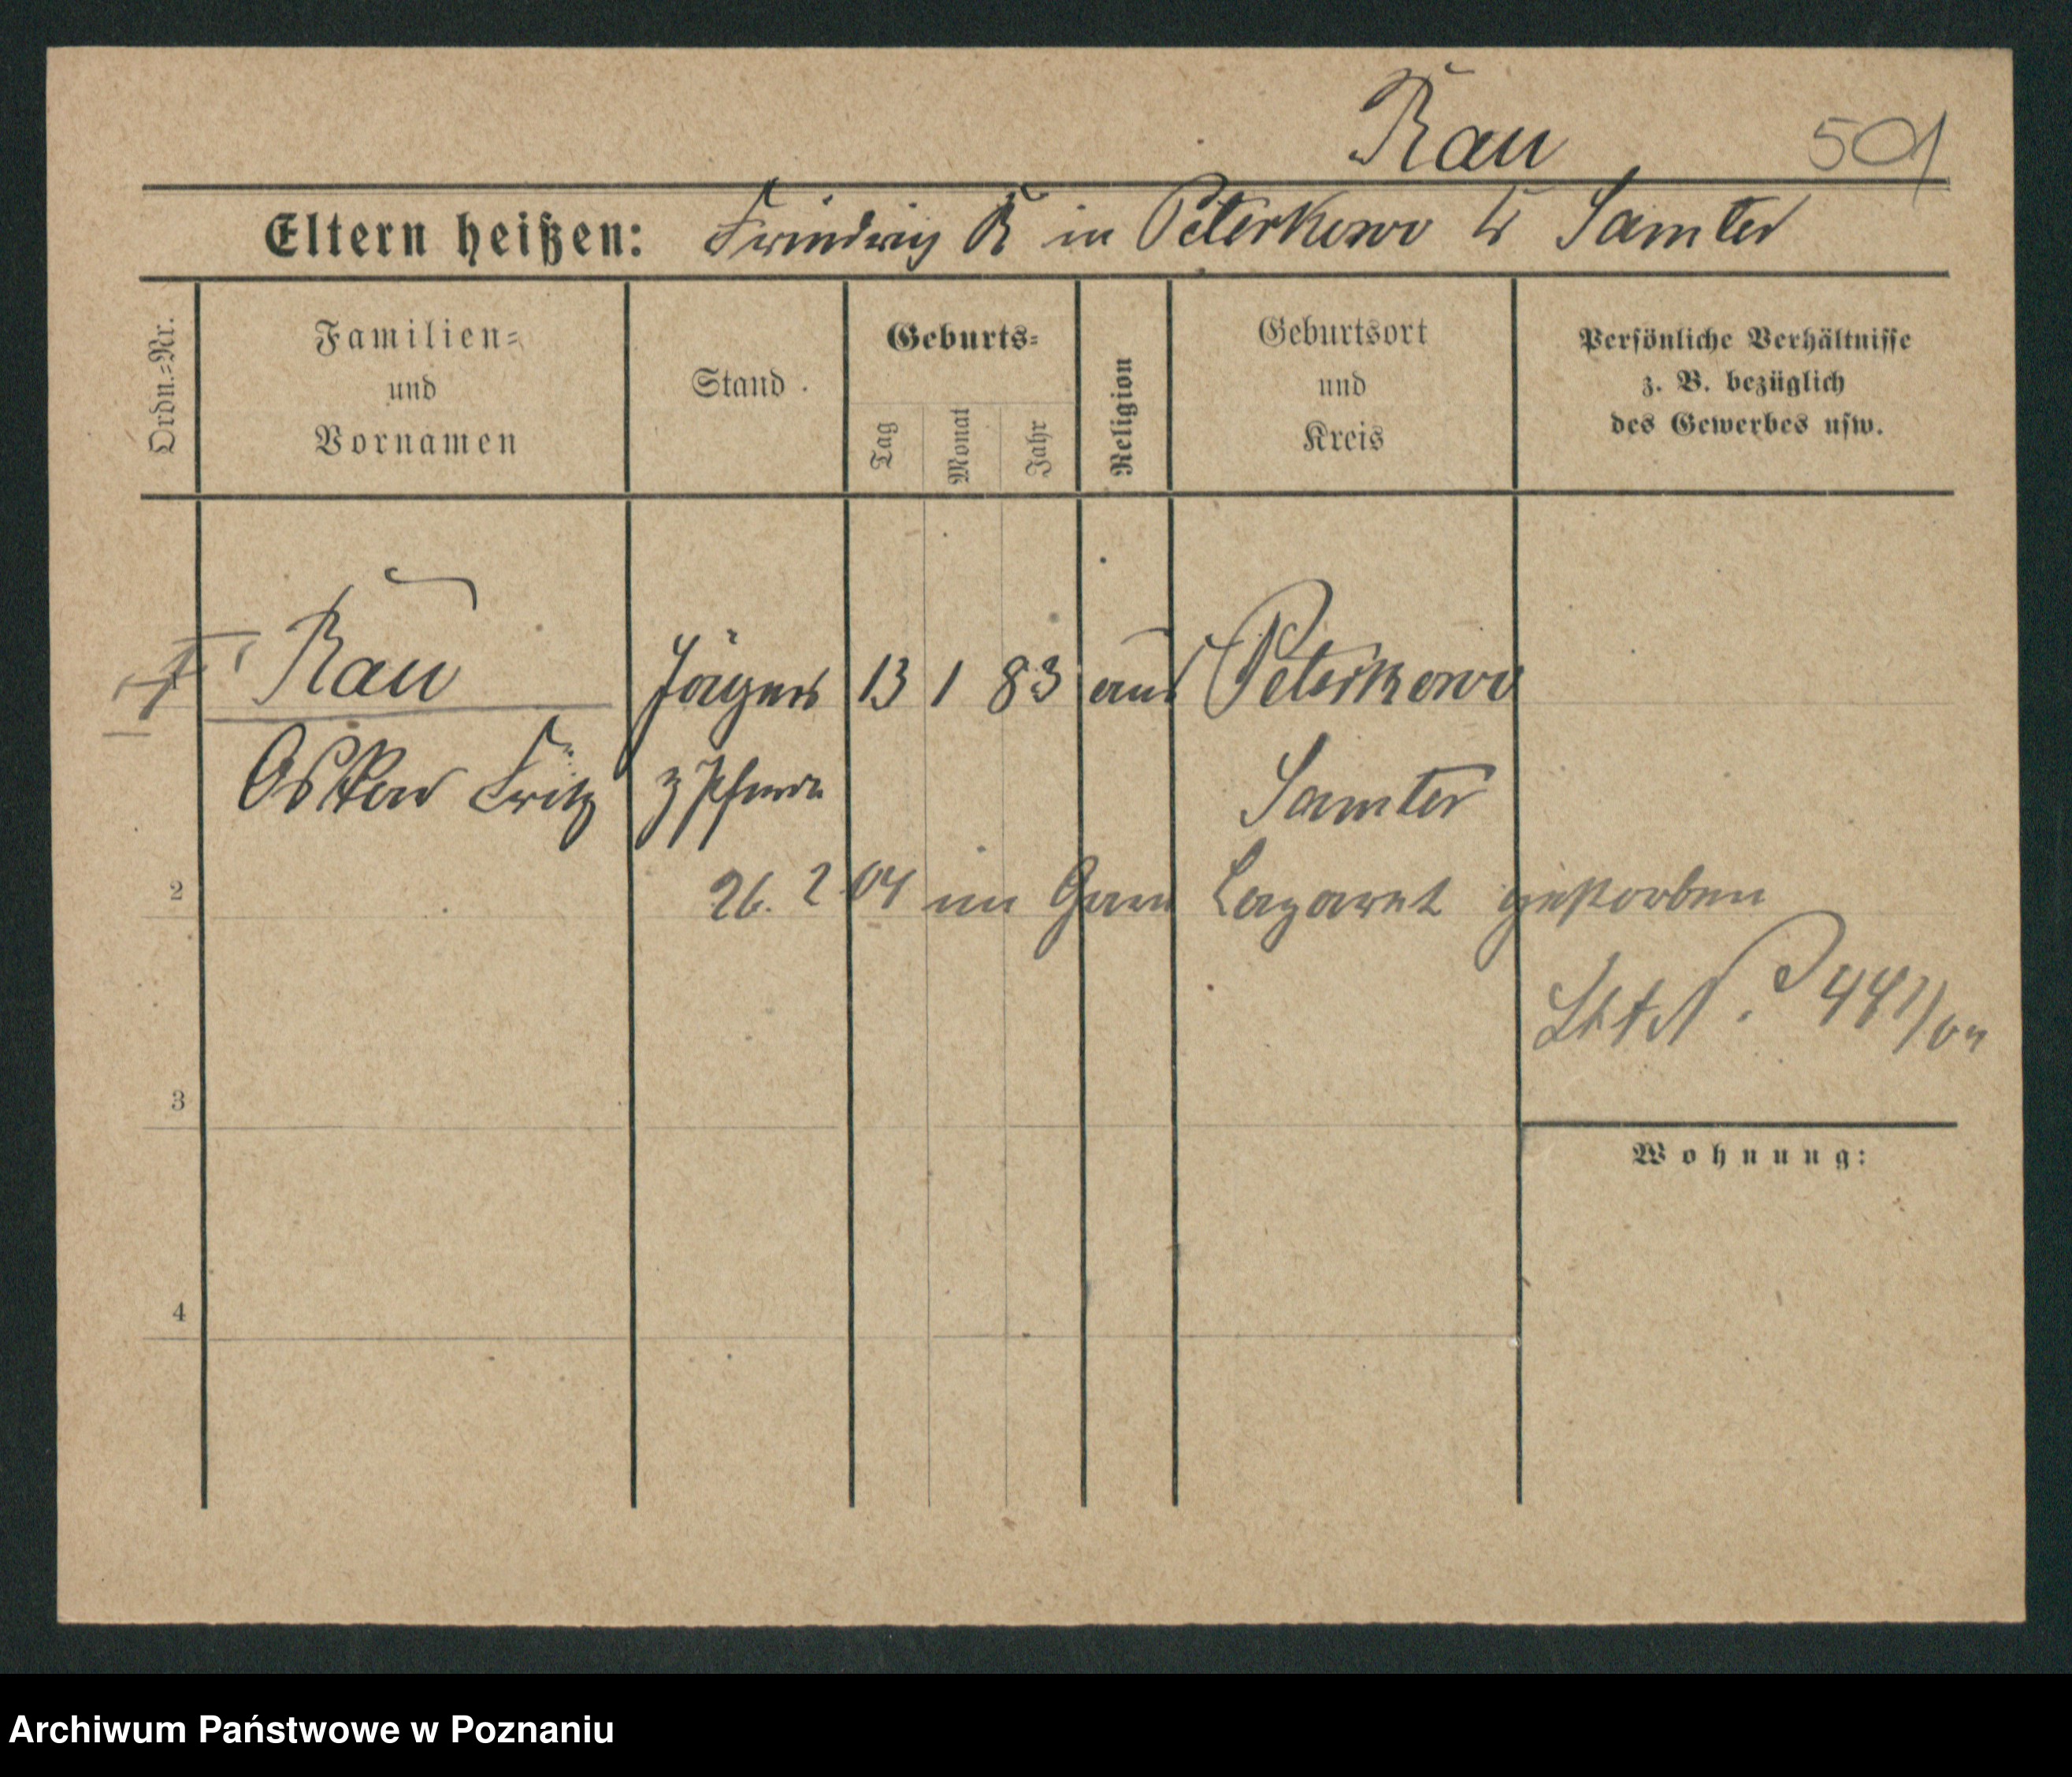 Rau 501
Eltern heißen: Friedrich R in Peterkowo Kr Samter
Ordn.=Nr.
Familien=
und
Vornamen
Stand
Geburts=
Tag
Monat
Jahr
Religion
Geburtsort
und
Kreis
Persönliche Verhältnisse
z. B. bezüglich
des Gewerbes usw.
Rau Jäger 13 1 83 Peterkowo
Oskar Fritz z Pferde Samter
2 26. 2 04 im Garn Lazaret gestorben
3
Wohnung:
4
Archiwum Państwowe w Poznaniu